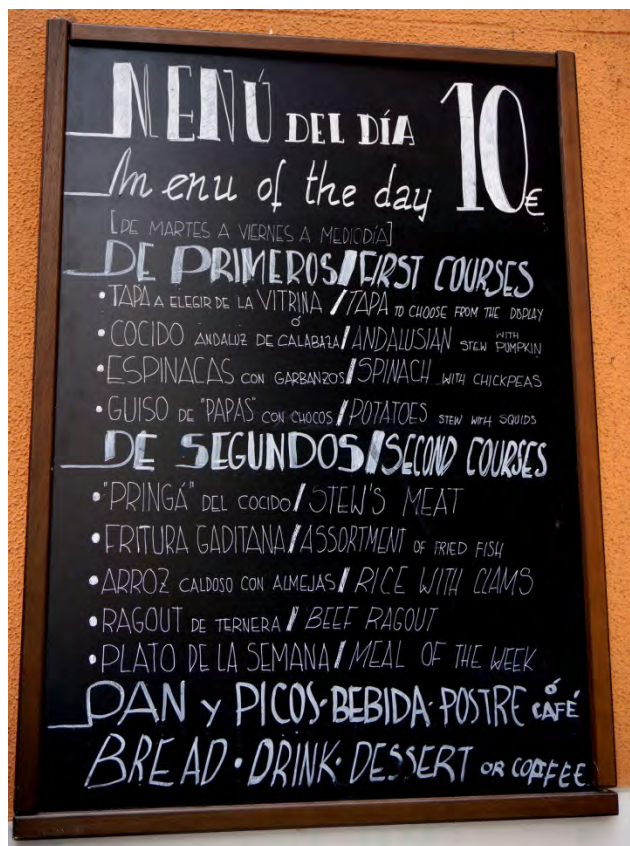 MENÚ DEL DÍA 10€
Menu of the day
[DE MARTES A VIERNES A MEDIODÍA]
DE PRIMEROS/FIRST COURSES
• TAPA A ELEGIR DE LA VITRINA / TAPA TO CHOOSE FROM THE DISPLAY
ó
• COCIDO ANDALUZ DE CALABAZA / ANDALUSIAN STEW WITH PUMPKIN
• ESPINACAS CON GARBANZOS / SPINACH WITH CHICKPEAS
• GUISO DE "PAPAS" CON CHOCOS / POTATOES STEW WITH SQUIDS
DE SEGUNDOS/SECOND COURSES
• "PRINGÁ" DEL COCIDO / STEW'S MEAT
• FRITURA GADITANA / ASSORTMENT OF FRIED FISH
• ARROZ CALDOSO CON ALMEJAS / RICE WITH CLAMS
• RAGOUT DE TERNERA / BEEF RAGOUT
• PLATO DE LA SEMANA / MEAL OF THE WEEK
PAN y PICOS·BEBIDA·POSTRE ó CAFÉ
BREAD·DRINK·DESSERT OR COFFEE